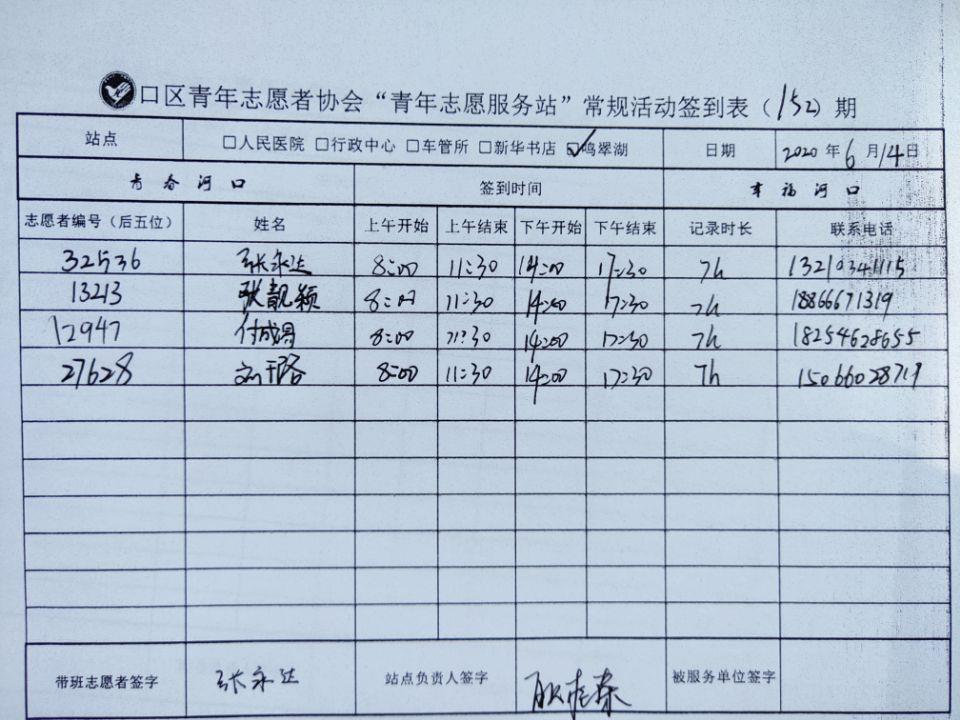 口区青年志愿者协会“青年志愿服务站”常规活动签到表（152）期
站点 □人民医院 □行政中心 □车管所 □新华书店 ☑鸣翠湖 日期 2020年6月14日
青春河口 签到时间 幸福河口
志愿者编号（后五位） 姓名 上午开始 上午结束 下午开始 下午结束 记录时长 联系电话
32536 张永达 8:00 11:30 14:00 17:30 7h 13210341115
13213 张靓颖 8:00 11:30 14:00 17:30 7h 18866671319
12947 8:00 11:30 14:00 17:30 7h 18254628655
27628 8:00 11:30 14:00 17:30 7h 15066028719
带班志愿者签字 张永达 站点负责人签字 被服务单位签字